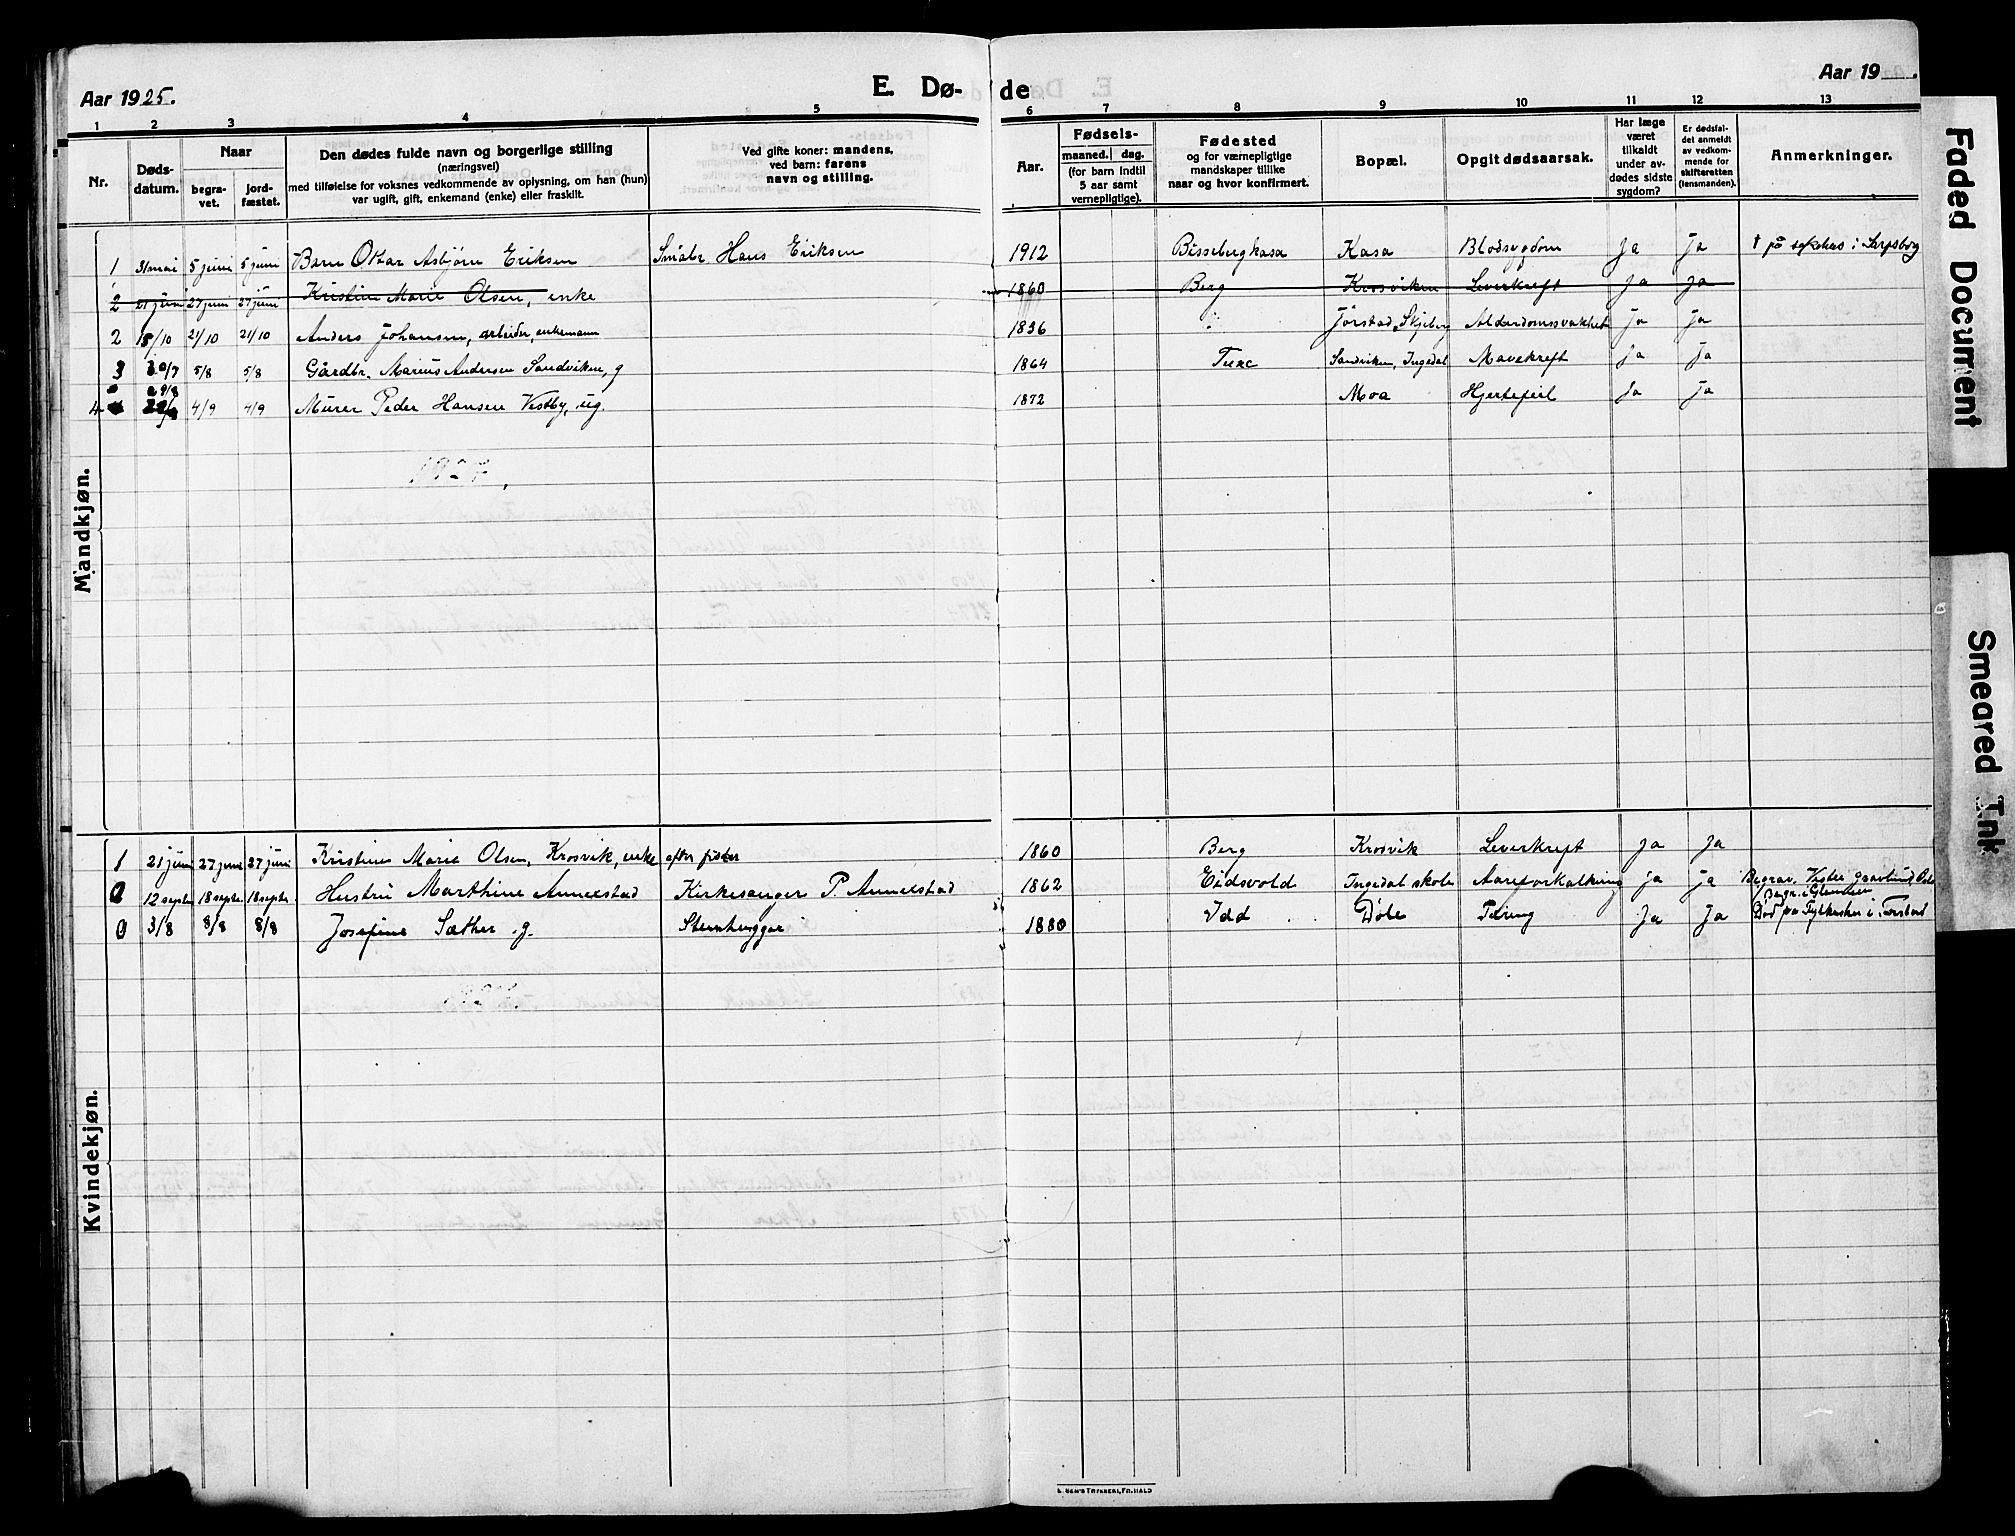 Aar 1925.
E. Dø-
de
Aar 19
1 2 3 4 5 6 7 8 9 10 11 12 13
Nr.
Døds-
datum.
Naar
begra-
vet.
jord-
fæstet.
Den dødes fulde navn og borgerlige stilling
(næringsvei)
med tilføielse for voksnes vedkommende av oplysning, om han (hun)
var ugift, gift, enkemand (enke) eller fraskilt.
Ved gifte koner: mandens,
ved barn: farens
navn og stilling.
Aar.
Fødsels-
maaned. dag.
(for barn indtil
5 aar samt
vernepligtige).
Fødested
og for værnepligtige
mandskaper tillike
naar og hvor konfirmert.
Bopæl.
Opgit dødsaarsak.
Har læge
været
tilkaldt
under av-
dødes sidste
sygdom?
Er dødsfal-
det anmeldt
av vedkom-
mende for
skifteretten
(lensmanden).
Anmerkninger.
Mandkjøn.
1 31 mai 5 juni 5 juni Barn Ottar Asbjørn Eriksen Småbr Hans Eriksen 1912 Bissebergkasa Kasa Blodsygdom Ja Ja † på sykehus i Sarpsborg
2 21 juni 27 juni 27 juni Kristine Marie Olsen, enke 1860 Berg Krosviken Leverkreft Ja Ja
2 15/10 21/10 21/10 Anders Johansen, arbeider, enkemann 1836 Jørstad, Skjeberg Alderdomssvakhet Ja Ja
3 30/7 5/8 5/8 Gårdbr. Marius Andersen Sandviken, g 1864 Tune Sandviken, Ingedal Mavekreft Ja Ja
4 29/8 4/9 4/9 Murer Peder Hansen Vestby, ug. 1872 Moa Hjertefeil Ja Ja
1927.
Kvindekjøn.
1 21 juni 27 juni 27 juni Kristine Marie Olsen, Krosvik, enke efter fisker 1860 Berg Krosvik Leverkreft Ja Ja
12 septr 18 septr 18 septr. Hustru Marthine Annerstad Kirkesanger P. Annerstad 1862 Eidsvold Ingedal skole Aareforkalkning Ja Ja Begrav. Vestre gravlund, Oslo
Begr. i Glemmen
0 3/8 8/8 8/8 Josefine Sæther g. Stenhugger 1880 Idd Døle Tæring Ja Ja Død på Sykehus i
Faded Document
Smeared Ink
E. SEM'S TRYKKERI, FR.HALD